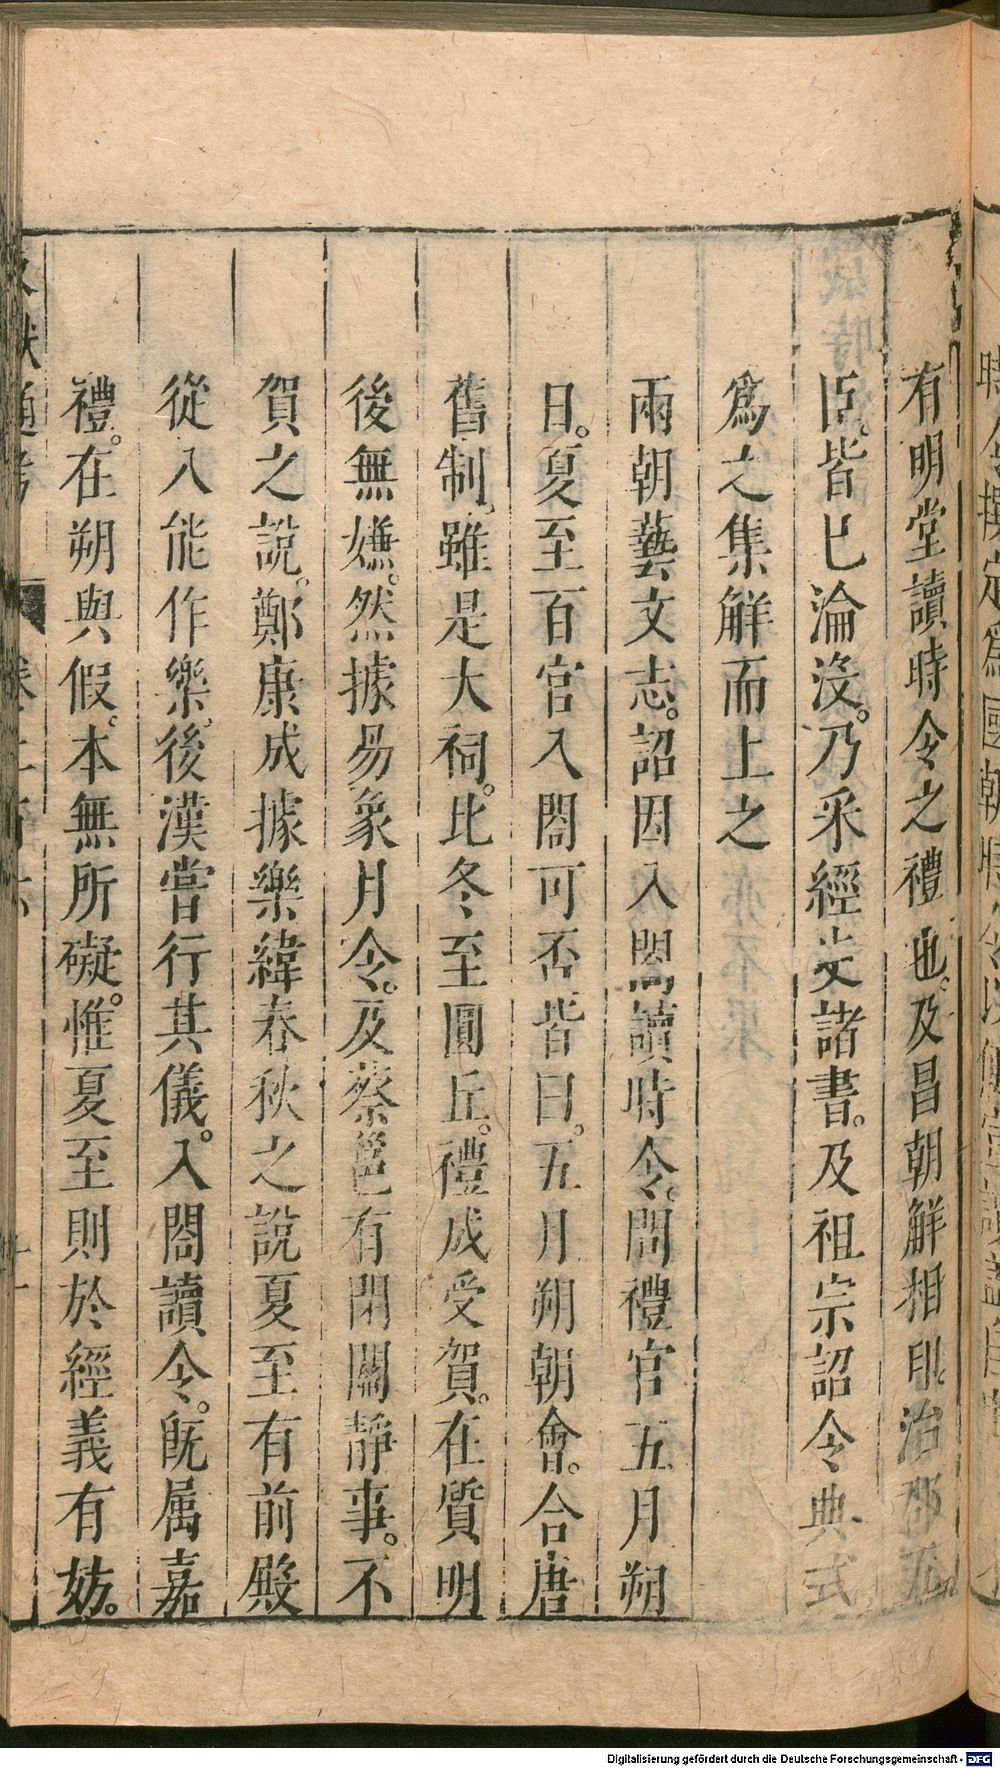 有明堂讀時令之禮也。及昌朝解相印。治郡五
臣。皆已淪沒。乃采經史諸書。及祖宗詔令典故
爲之集解而上之
兩朝藝文志。詔因入閤讀時令。問禮官五月朔
日。夏至百官入閤可否皆曰。五月朔朝會。合唐
舊制。雖是大祠。比冬至圜丘。禮成受賀。在質明
後無嫌。然據易象月令。及蔡邕有閉關靜事。不
賀之說。鄭康成據樂緯春秋之說夏至有前殿
從入能作樂。後漢嘗行其儀。入閤讀令。旣属嘉
禮。在朔與假。本無所礙。惟夏至則於經義有妨。
文獻通考 卷二百六 十一
Digitalisierung gefördert durch die Deutsche Forschungsgemeinschaft - DFG